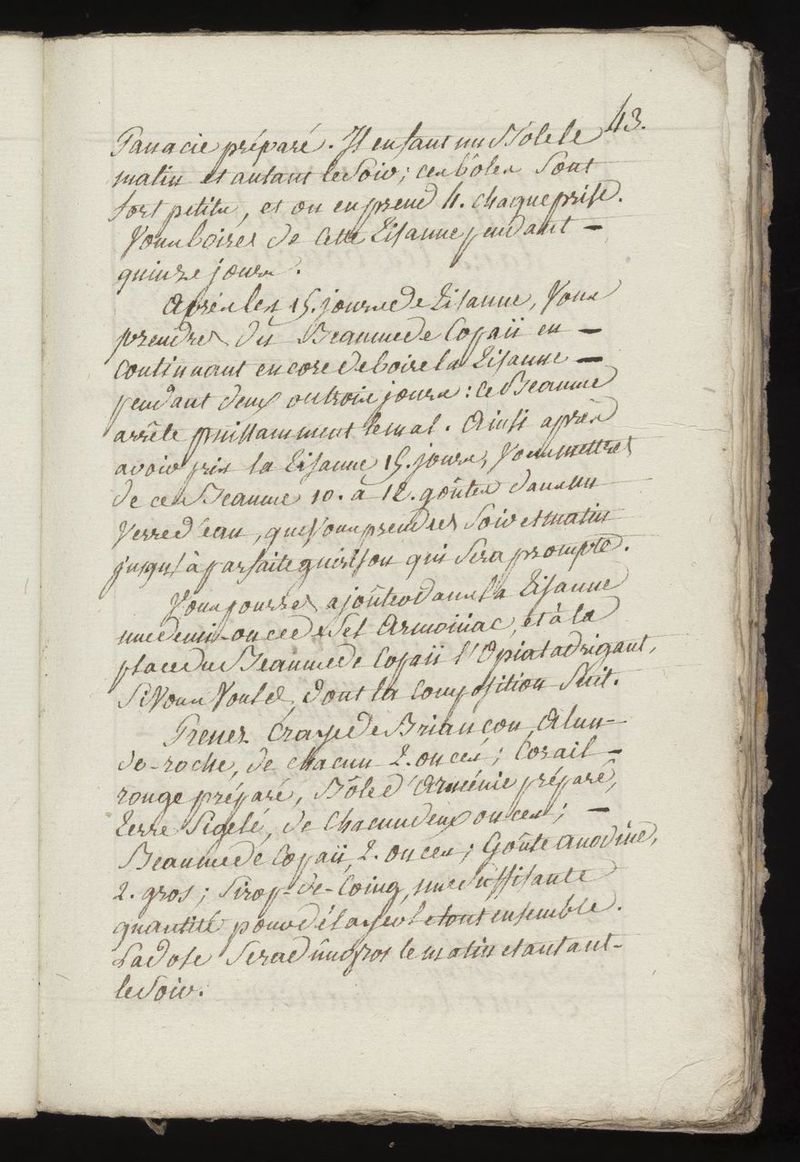 43.
Panacie préparé. Il en faut un Bôle le
matin et autant le Soir; ces bôles Sont
fort petits, et on en prend 4. chaque prise.
Vous boirés de Cette Tisanne pendant –
quinze jours.
Après les 15. jours de Tisanne, Vous
prendrés du Beaume de Copaii en –
continuant encore de boire la Tisanne –
pendant deux ou trois jours: ce Beaume
arrête puissamment le mal. Ainsi après
avoir pris la Tisanne 15. jours, Vous mettrés
de ce Beaume 10. à 12. goûtes dans un
Verre d'eau, que Vous prendrés Soir et matin
jusqu'à parfaite guérison qui Sera prompte.
Vous pourrés ajoûter dans la Tisanne
une demi-once de Sel Armoniac, et à la
place du Beaume de Copaii l'Opiat adrigant,
Si Vous Voulés, dont la Composition Suit.
Prenez Craye de Briançon, Alun-
de-roche, de chacun 2. onces; Corail –
rouge préparé, Bôle d'Arménie préparé,
Terre Sigelé, de Chacun deux onces; –
Beaume de Copaii, 2. onces; Goûte anodine,
2. gros; Sirop-de-Coing, une Suffisante
quantité pour délayer le tout ensemble.
La dose Sera d'un gros le matin et autant-
le Soir.